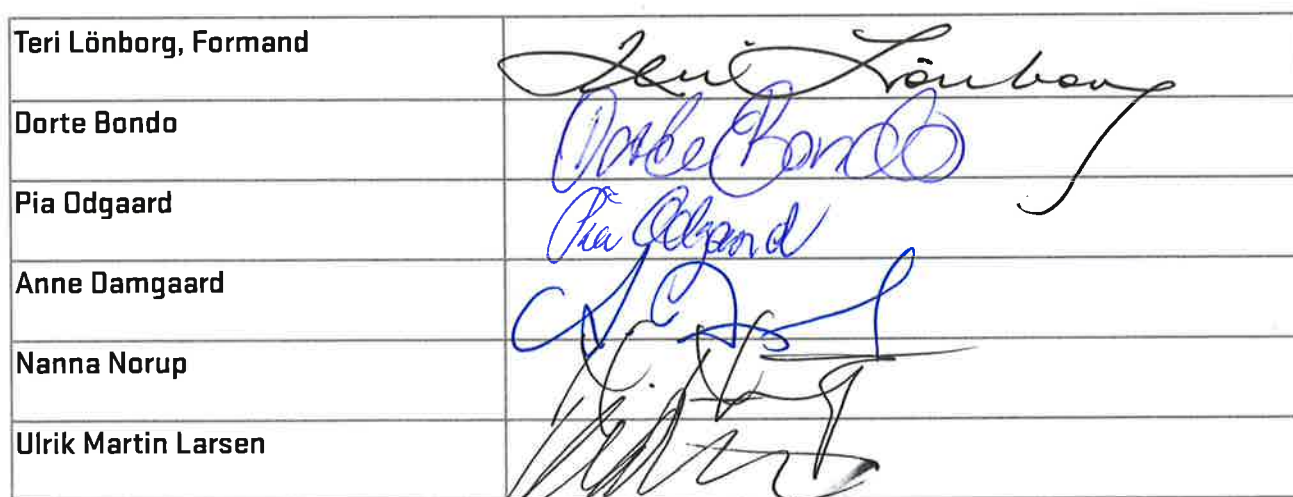 Teri Lönborg, Formand
Teri Lönborg
Dorte Bondo
Dorte Bondo
Pia Odgaard
Pia Odgaard
Anne Damgaard
Nanna Norup
Ulrik Martin Larsen